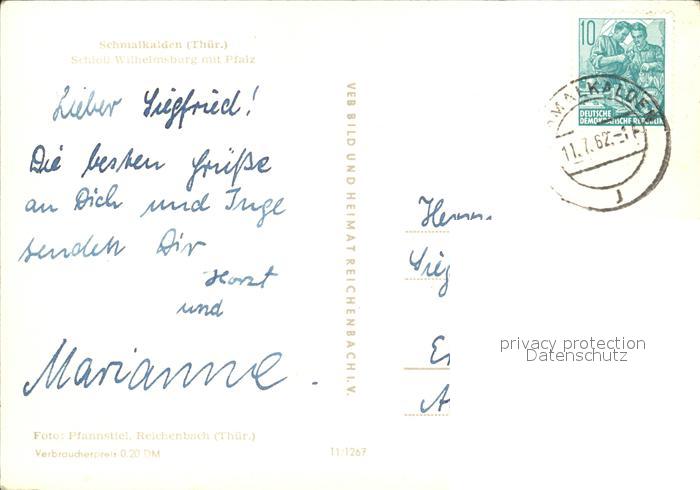 Schmalkalden (Thür.)
Schloß Wilhelmsburg mit Pfalz
Lieber Siegfried!
Die besten Grüße
an Dich und Inge
senden Dir
Horst
und
Marianne.
Foto: Pfannstiel, Reichenbach (Thür.)
Verbraucherpreis 0,20 DM
11/1267
VEB BILD UND HEIMAT REICHENBACH I. V.
10
DEUTSCHE
DEMOKRATISCHE REPUBLIK
MALKALDEN
11.7.62.-1
J
Herrn
Sieg
privacy protection
Datenschutz